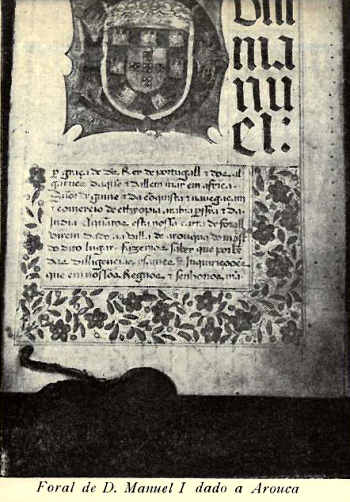 Dom
ma
nu
el:
p graça de ds Rey de portugall & dos al
garues daquē & dallem mar em africa
señor de guine & da conquista & navegaçam
& comercio de ethyopia arabia pssia & da
India A quātos esta nossa carta de forall
virem dado aa villa de arouqua do mosto
do dito lugar fazemos saber que por bē
das Diligencias exames & Inquirições
que em nossos Regnos & senhorios mā
Foral de D. Manuel I dado a Arouca